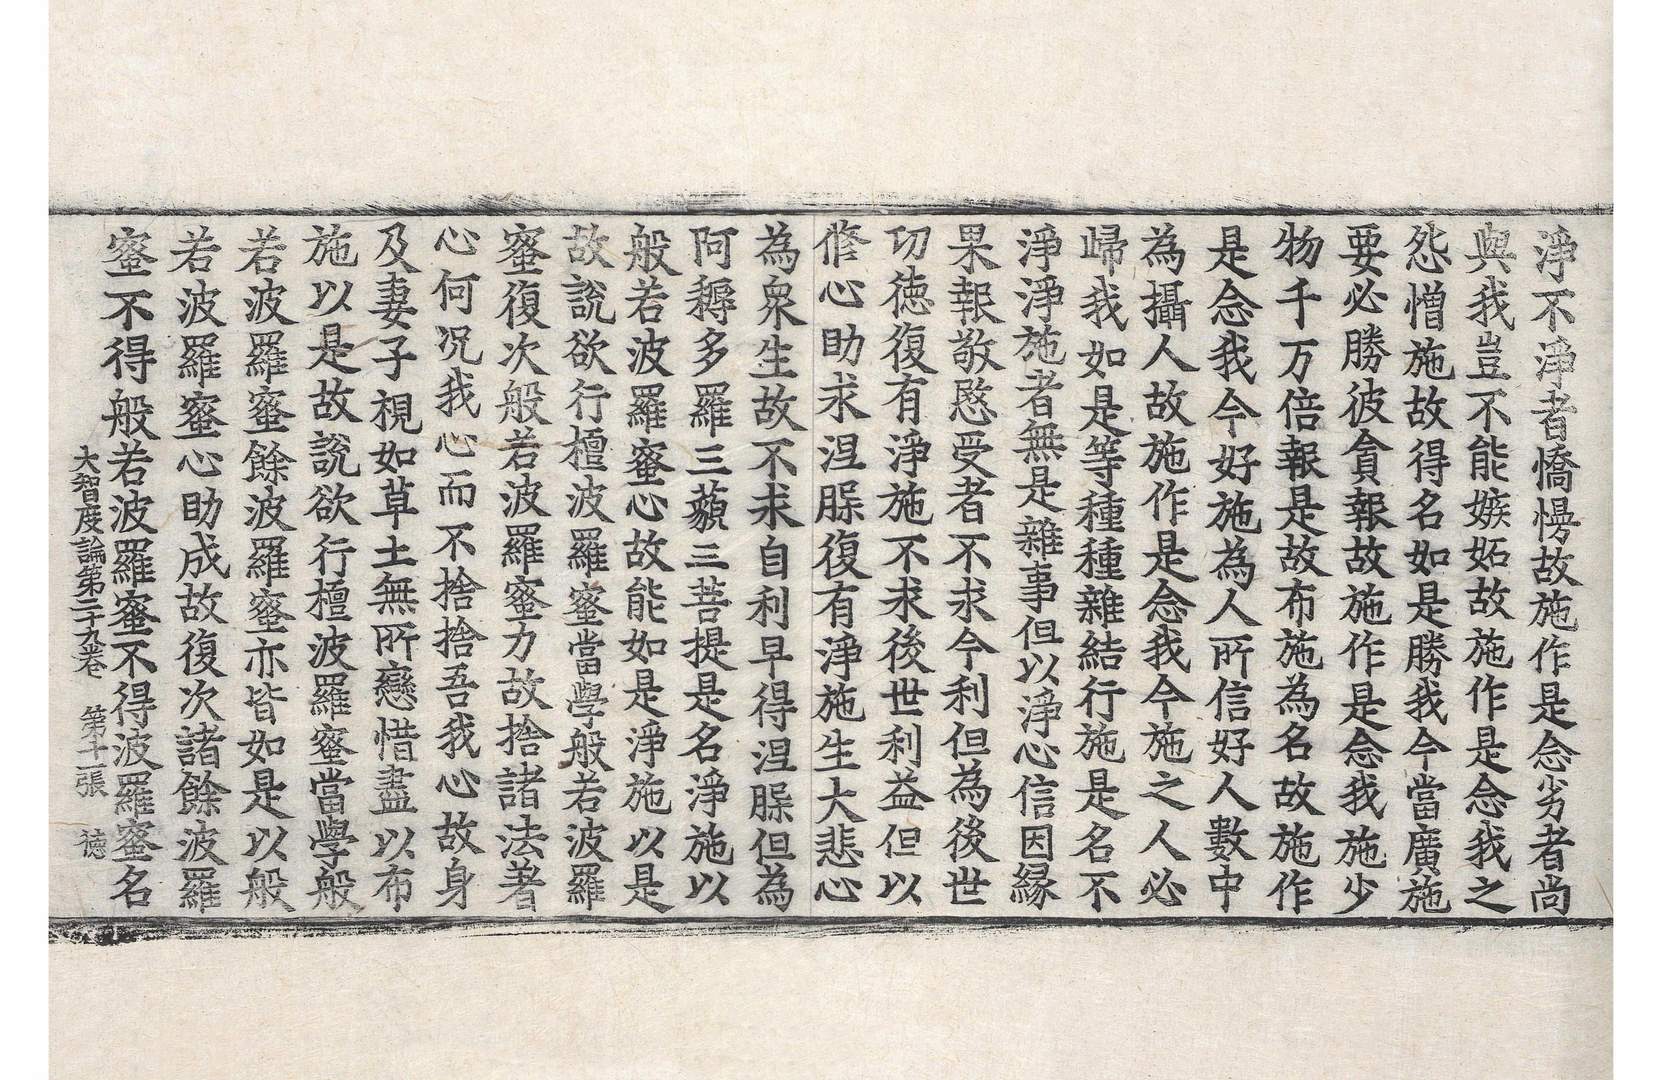 淨不淨者憍慢故施作是念劣者尚
與我豈不能嫉妬故施作是念我之
怨憎施故得名如是勝我今當廣施
要必勝彼貪報故施作是念我施少
物千万倍報是故布施為名故施作
是念我今好施為人所信好人數中
為攝人故施作是念我今施之人必
歸我如是等種種雜結行施是名不
淨淨施者無是雜事但以淨心信因緣
果報敬愍受者不求今利但為後世
功德復有淨施不求後世利益但以
修心助求涅槃復有淨施生大悲心
為衆生故不求自利早得涅槃但為
阿耨多羅三藐三菩提是名淨施以
般若波羅蜜心故能如是淨施以是
故說欲行檀波羅蜜當學般若波羅
蜜復次般若波羅蜜力故捨諸法著
心何況我心而不捨捨吾我心故身
及妻子視如草土無所戀惜盡以布
施以是故說欲行檀波羅蜜當學般
若波羅蜜餘波羅蜜亦皆如是以般
若波羅蜜心助成故復次諸餘波羅
蜜不得般若波羅蜜不得波羅蜜名
大智度論第二十九卷 第十一張 德